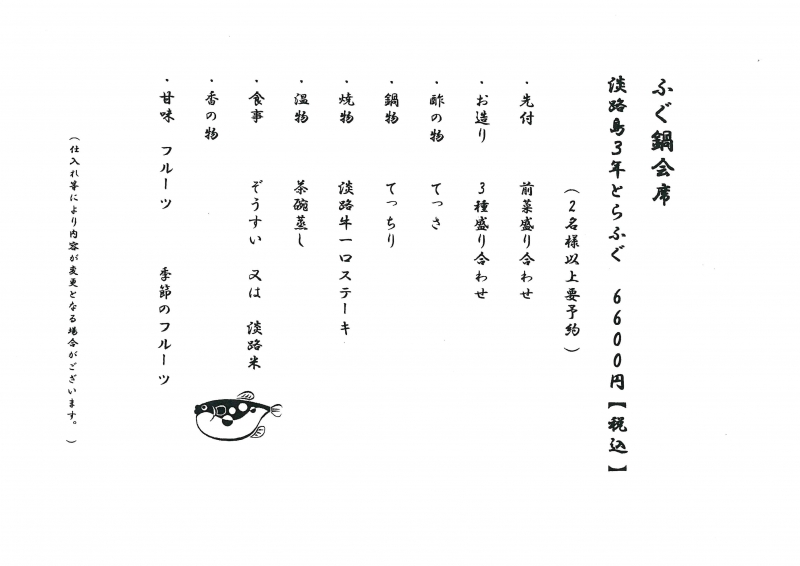 ふぐ鍋会席
淡路島3年とらふぐ 6600円【税込】
(2名様以上要予約)
・先付 前菜盛り合わせ
・お造り 3種盛り合わせ
・酢の物 てっさ
・鍋物 てっちり
・焼物 淡路牛一口ステーキ
・温物 茶碗蒸し
・食事 ぞうすい 又は 淡路米
・香の物
・甘味 フルーツ 季節のフルーツ
(仕入れ等により内容が変更となる場合がございます。)